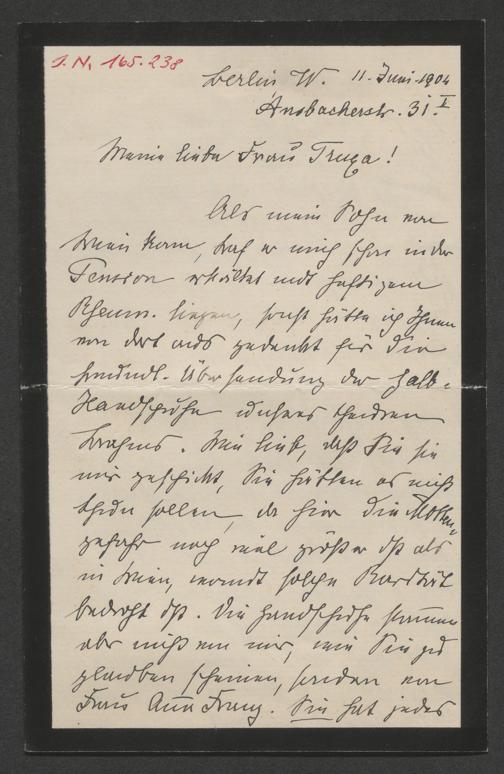 I. N. 165.238
Berlin W. 11. Juni 1904
Ansbacherstr. 31. I
Meine liebe Frau Truxa!
Als mein Sohn von
Wien kam, traf er mich schon in der
Pension erkältet und heftigem
Rheum. liegen, sonst hätte ich Ihnen
von dort aus gedankt für die
freundl. Übersendung der Halb-
Handschuhe unseres theuren
Brahms. Wie lieb, daß Sie sie
mir geschickt, Sie hätten es nicht
thun sollen, da hier die Motten-
gefahr noch viel größer ist als
in Wien, womit solche Rarität
bedroht ist. Die Handschuhe stammen
aber nicht von mir, wie Sie zu
glauben scheinen, sondern von
Frau Anna Franz. Sie hat jedes